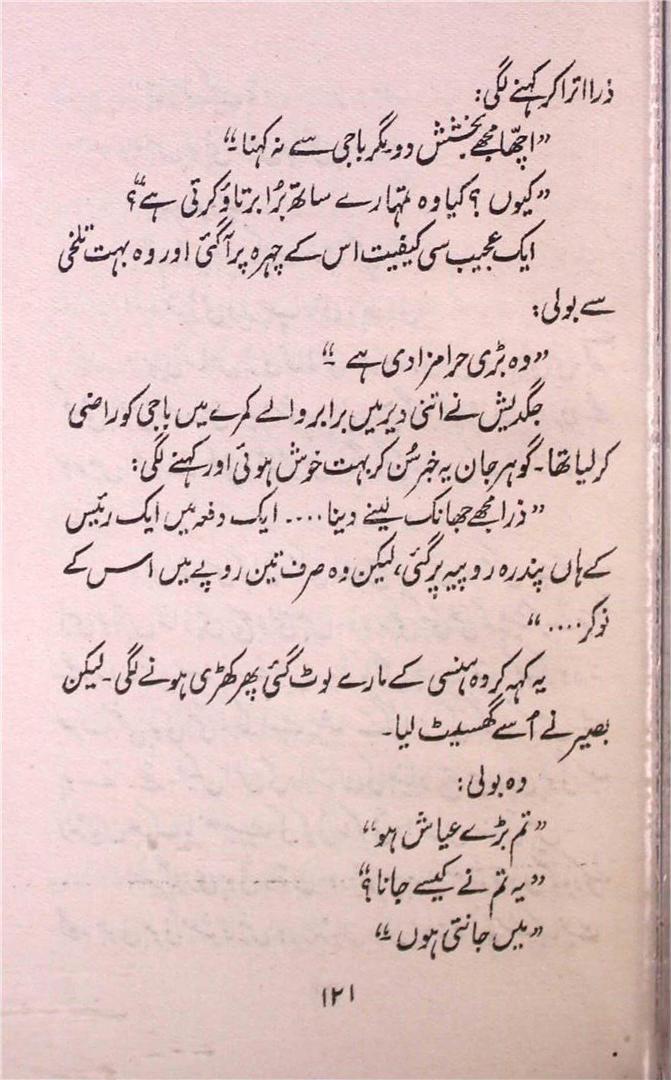 ذرا اترا کر کہنے لگی:
”اچھا مجھے بخشش دو۔ مگر باجی سے نہ کہنا۔“
”کیوں؟ کیا وہ تمہارے ساتھ بُرا برتاؤ کرتی ہے؟“
ایک عجیب سی کیفیت اس کے چہرہ پر آ گئی اور وہ بہت تلخی
سے بولی:
”وہ بڑی حرامزادی ہے۔“
جگدیش نے اتنی دیر میں برابر والے کمرے میں باجی کو راضی
کر لیا تھا۔ گوہر جان یہ خبر سُن کر بہت خوش ہوئی اور کہنے لگی:
”ذرا مجھے جھانک لینے دینا .... ایک دفعہ میں ایک رئیس
کے ہاں پندرہ روپیہ پر گئی، لیکن وہ صرف تین روپے میں اس کے
نوکر ....“
یہ کہہ کر وہ ہنسی کے مارے لوٹ گئی پھر کھڑی ہونے لگی۔ لیکن
بصیر نے اُسے گھسیٹ لیا۔
وہ بولی:
”تم بڑے عیاش ہو“
”یہ تم نے کیسے جانا؟“
”میں جانتی ہوں۔“
۱۲۱